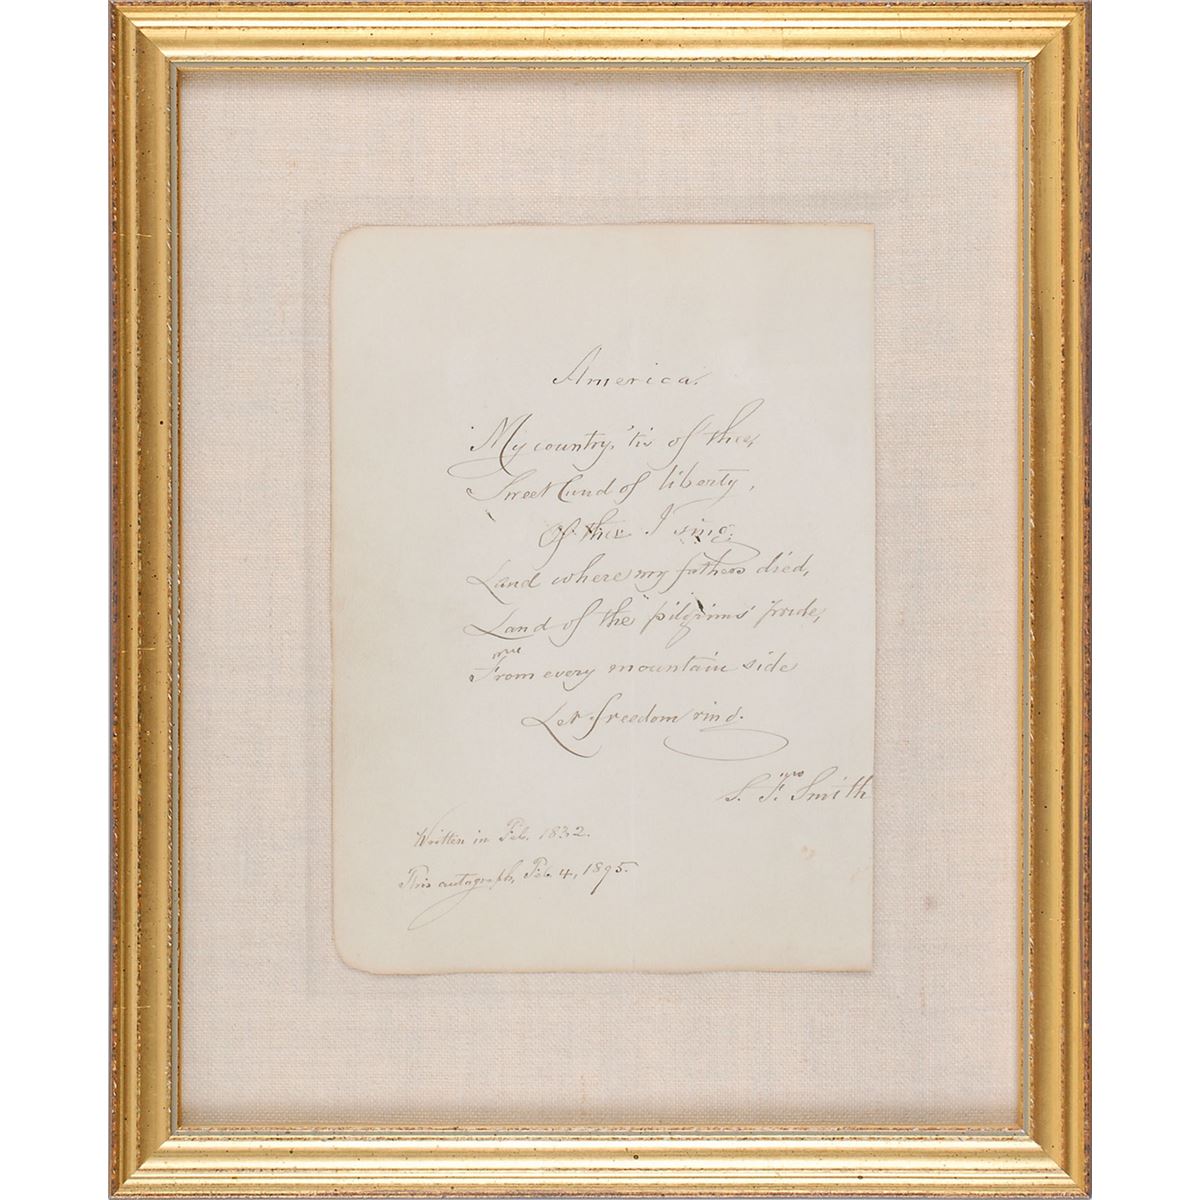 America.
My country, 'tis of thee,
Sweet land of liberty,
Of thee I sing;
Land where my fathers died,
Land of the pilgrims' pride,
From every mountain side
Let freedom ring.
S. F. Smith
Written in Feb. 1832.
This autograph, Feb. 4, 1895.